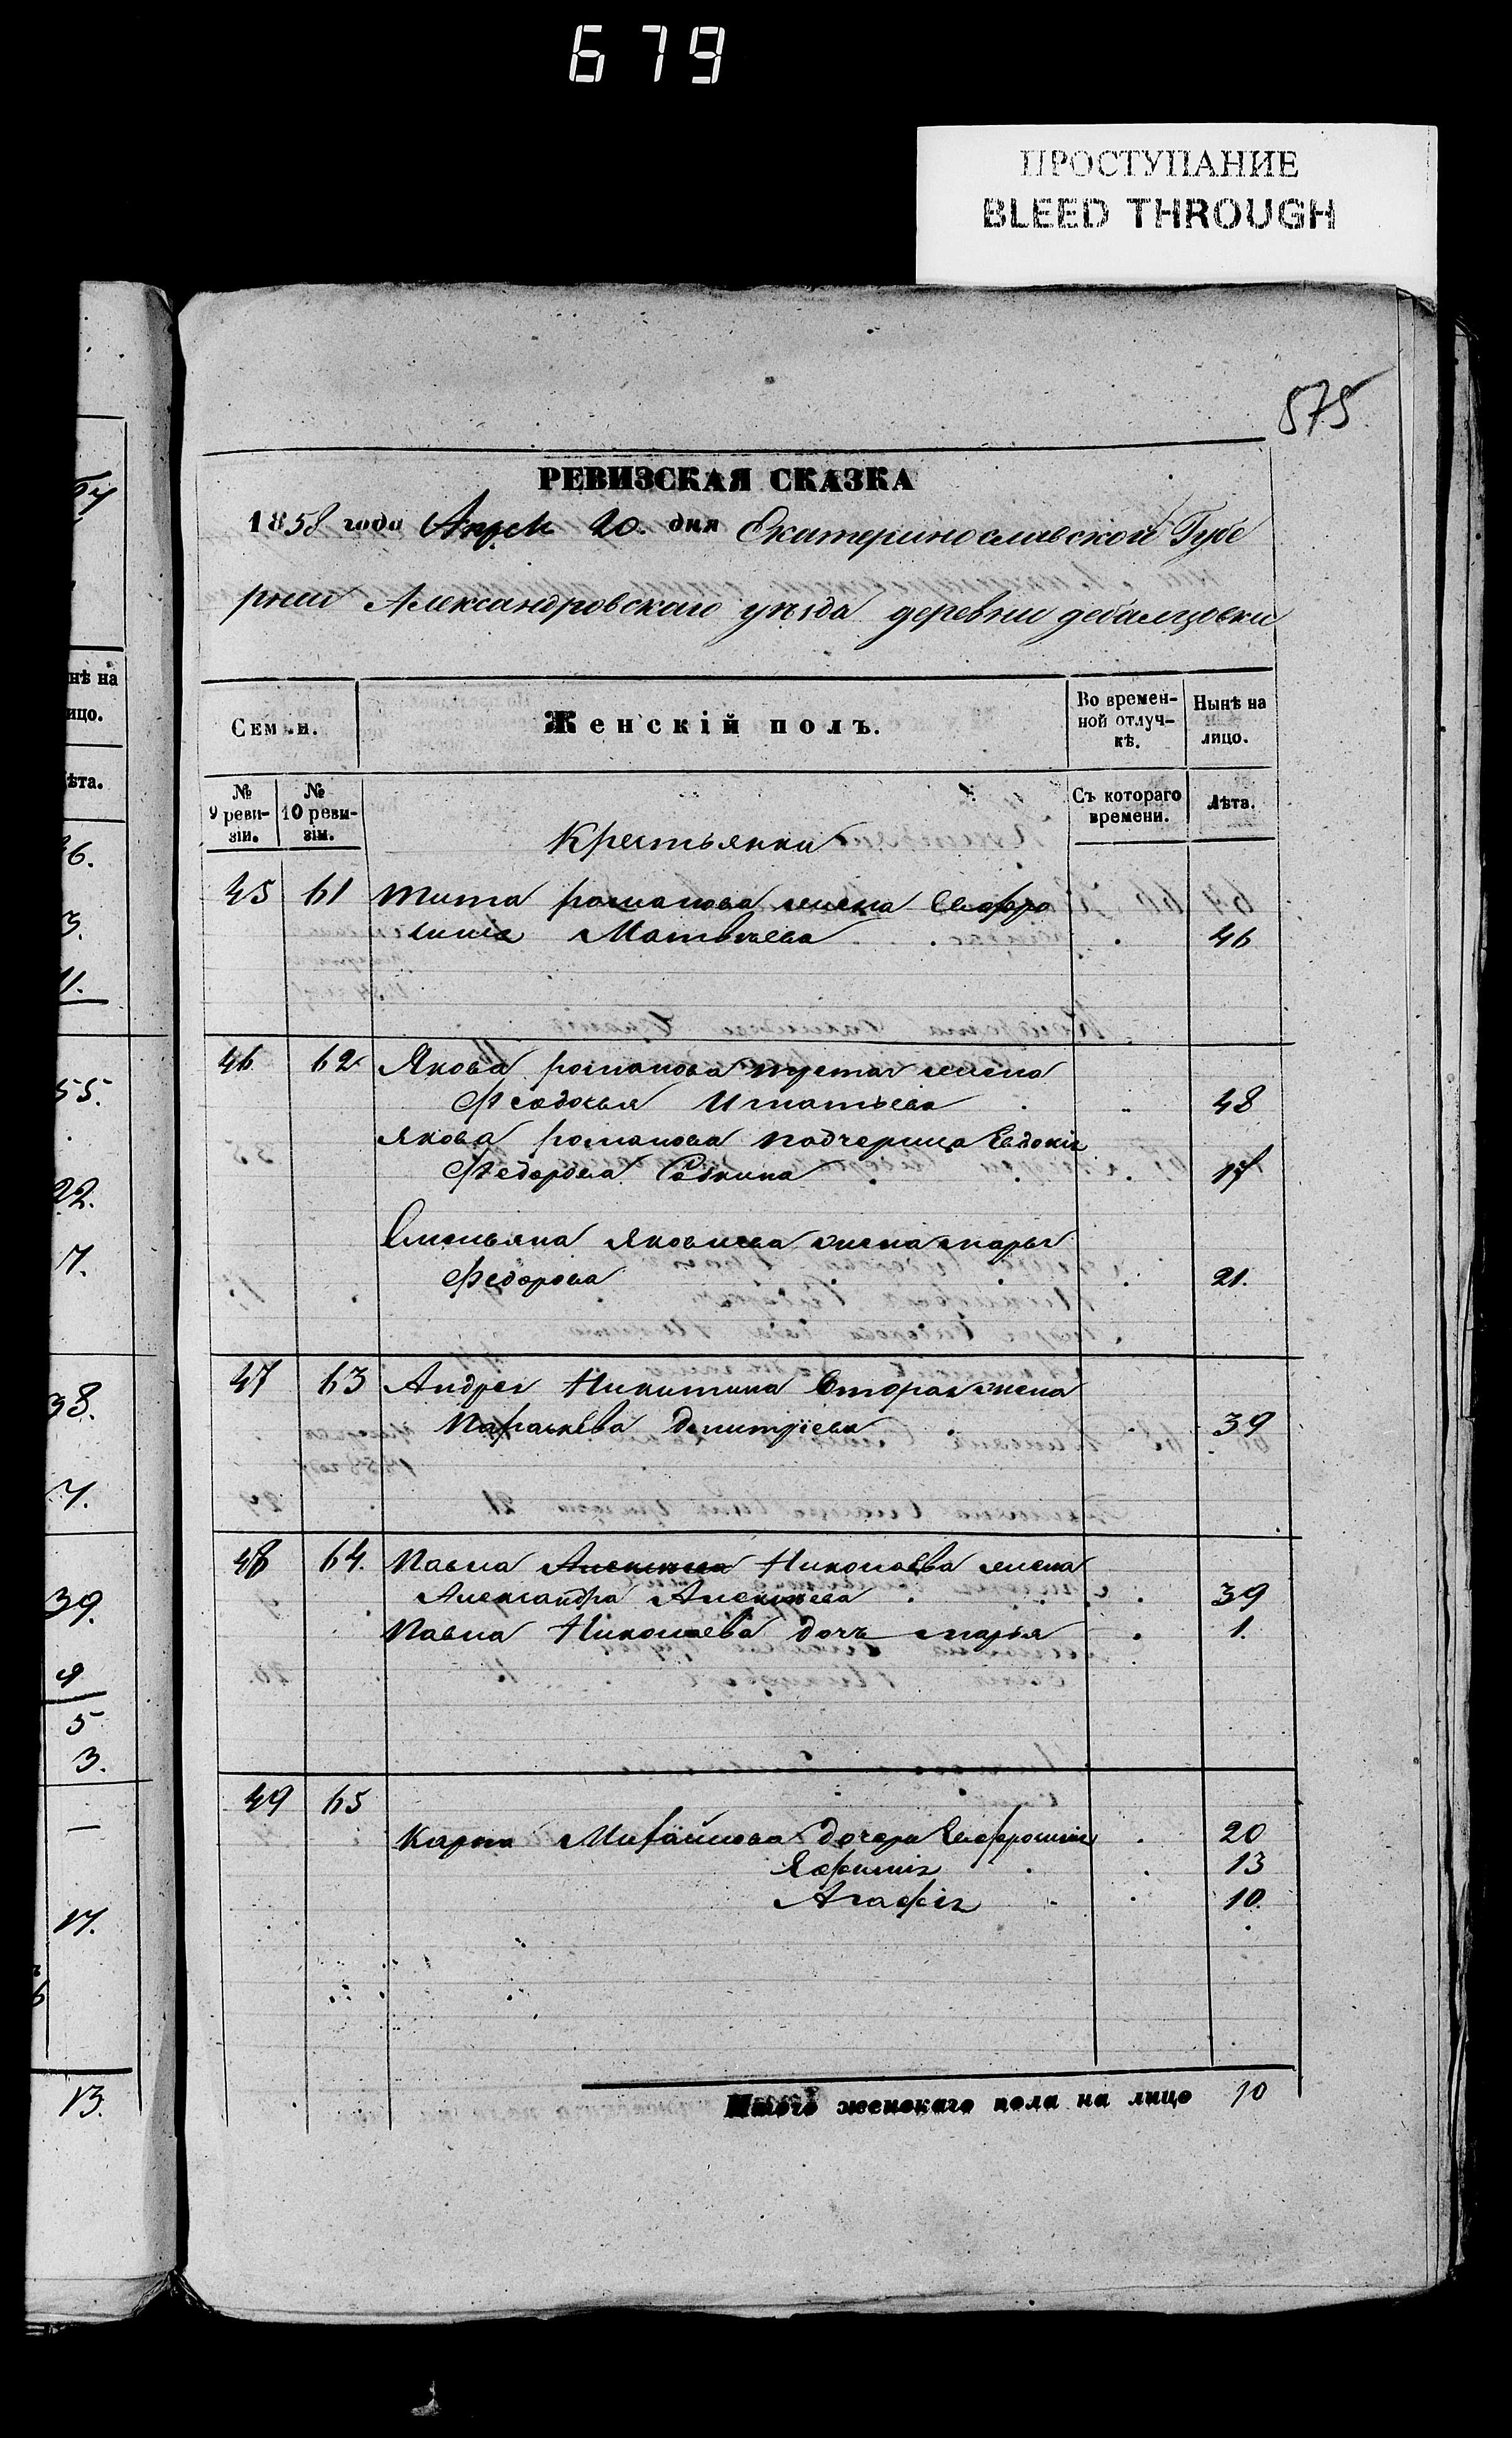 679
ПРОСТУПАНИЕ
BLEED THROUGH
575
РЕВИЗСКАЯ СКАЗКА
1858 года Апрел 20. дня Екатеринославской Губе
рнии Александровскаго уѣзда деревни дебалцовки
Семьи.
Женскій полъ.
Во времен-
ной отлуч-
кѣ.
Нынѣ на
лицо.
№
9 реви-
зіи.
№
10 реви-
зіи.
Съ котораго
времени.
Лѣта.
Крестьянки
45 61 Тита романова жена Евфро
синия Матвѣева 46
46 62 Якова романова жена
Феодосья Игнатьева 48
Якова романова подчерица Евдокія
Федорова 17
Емельяна Яковлева жена марья
Федорова 21.
47 63 Андрея Никитина Вторая жена
Параскѣва Димитріева 39
48 64. Павла Алексѣева Николаева жена
Александра Алексѣева 39
Павла Николаева дочь марья 1.
49 65
Карпа Михайлова дочери Евфросинія 20
Ефимія 13
Агафія 10.
Итого женскаго пола на лицо 10
нѣ на
ицо.
ѣта.
55.
22.
7.
38.
7.
39.
9
5
3.
17.
13.